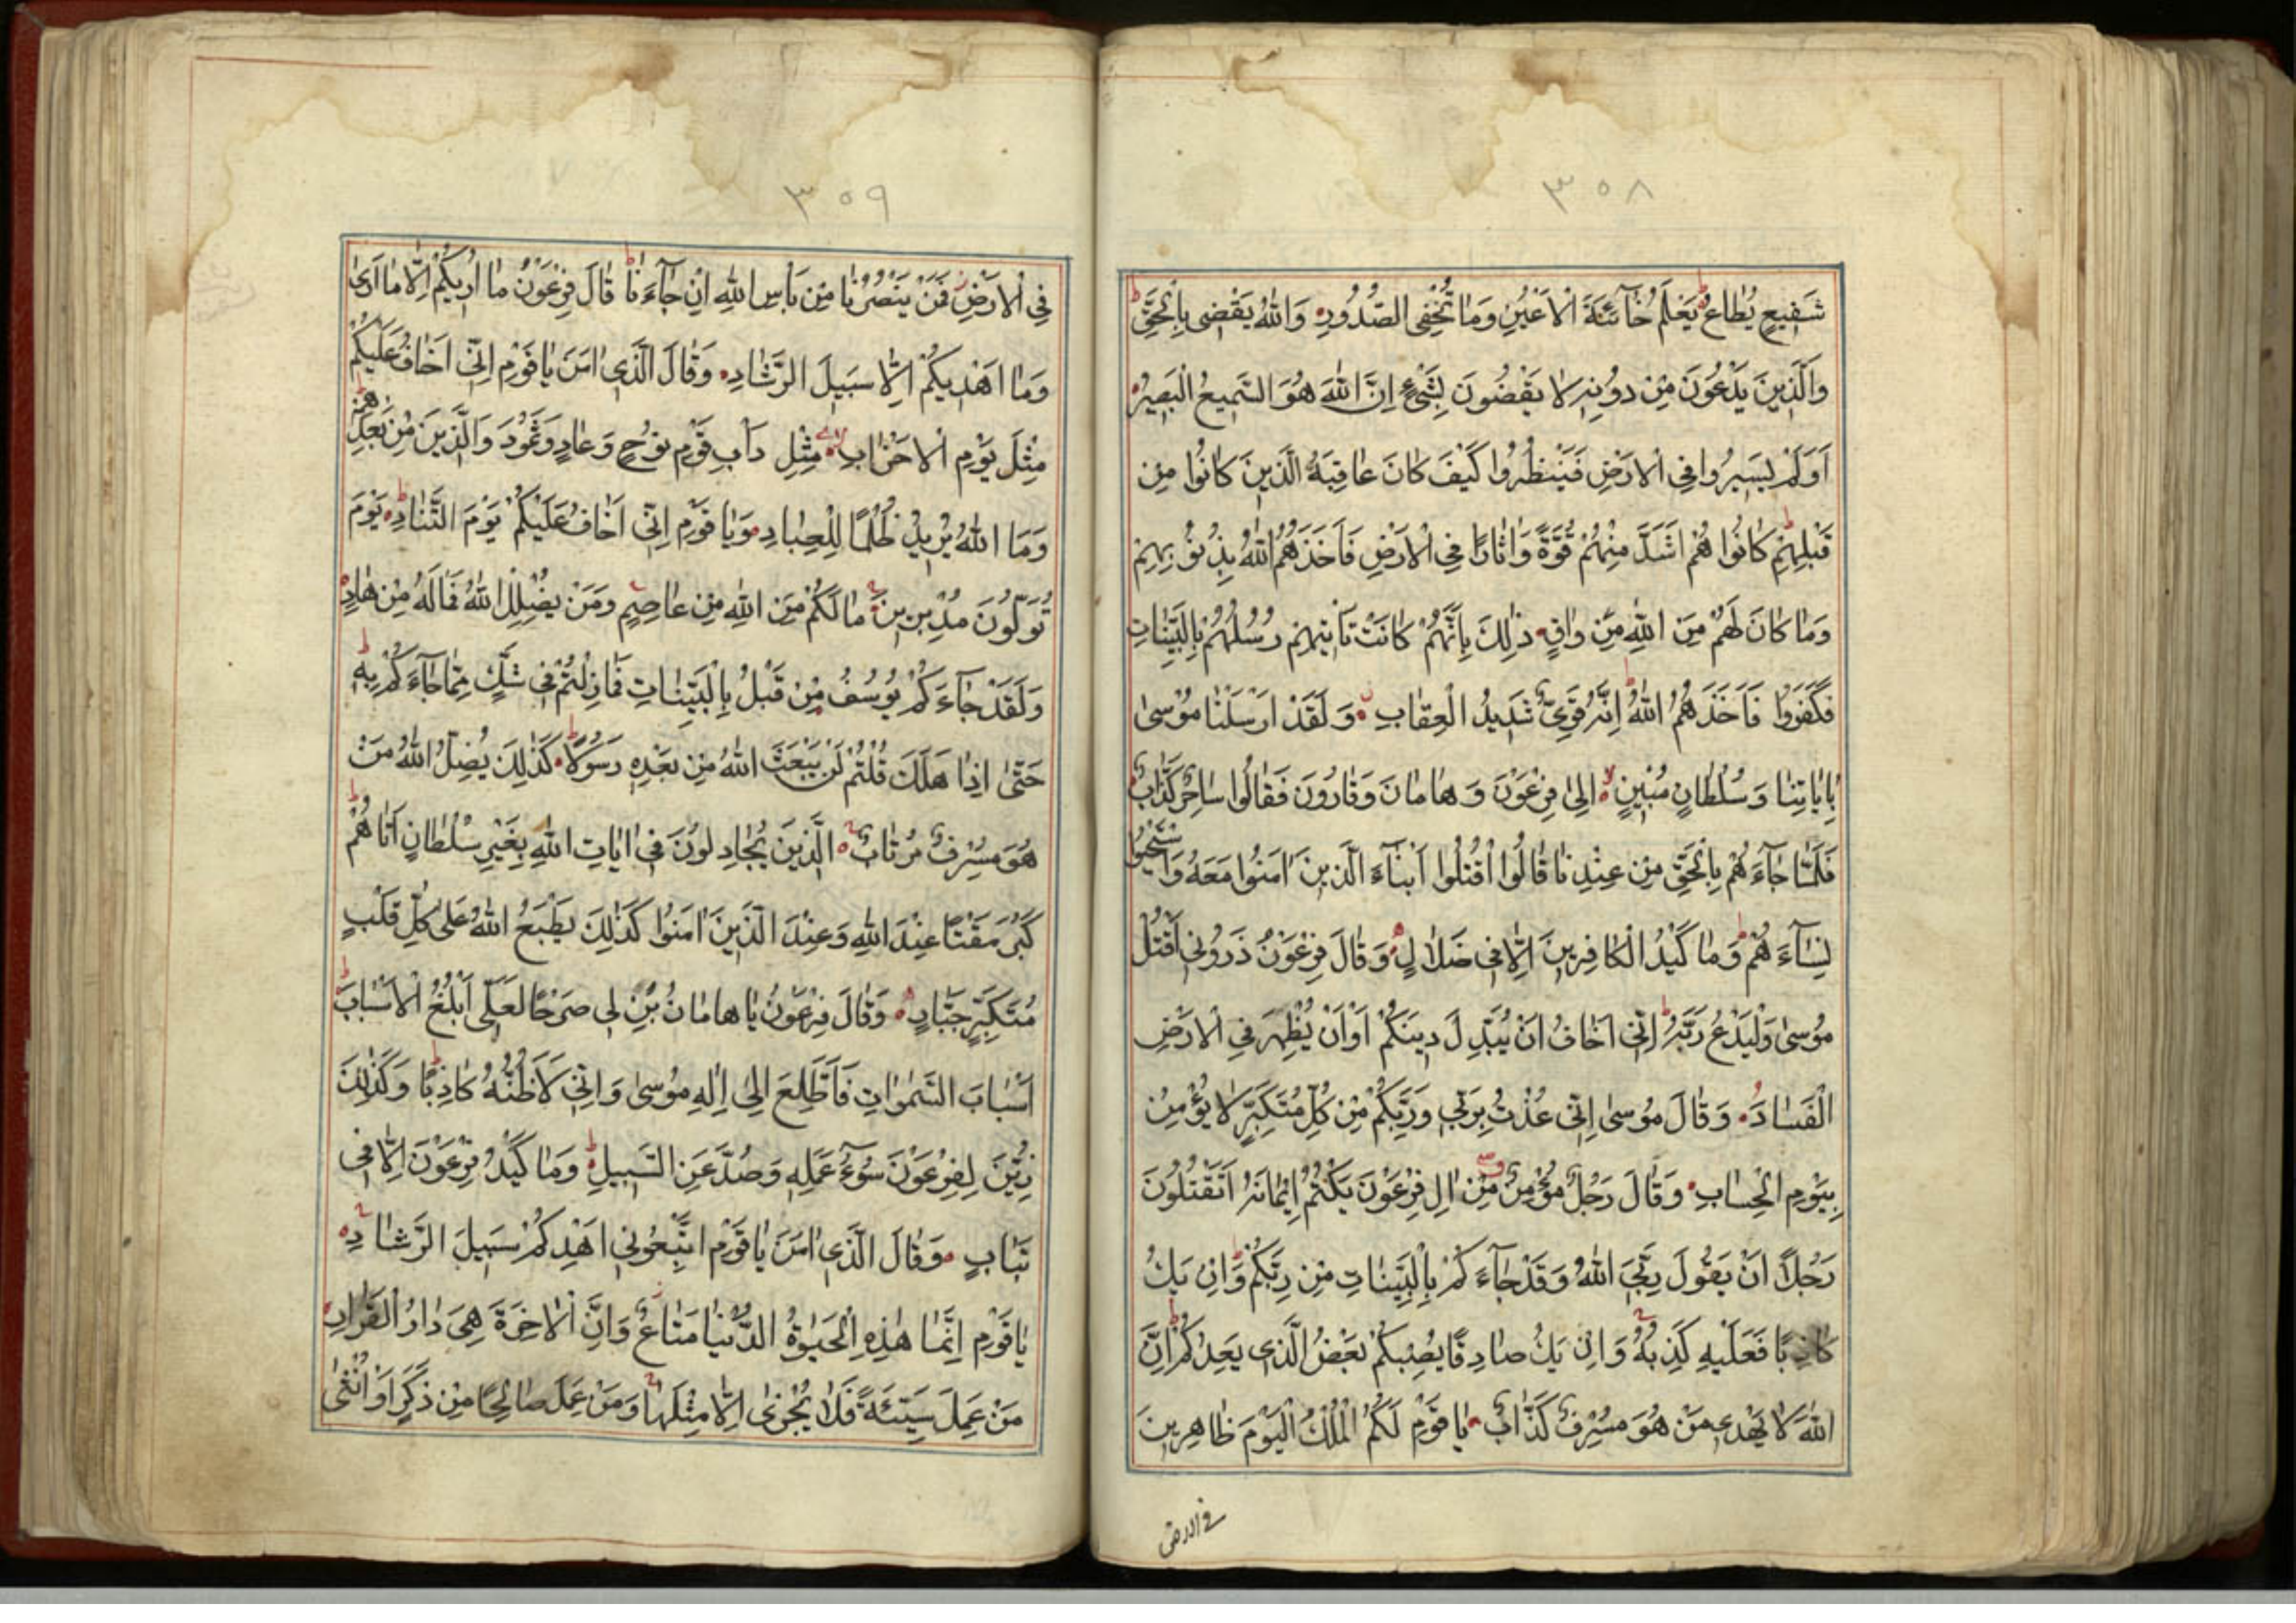 ٣٥٨
شَفِيعٍ يُطَاعُ يَعْلَمُ خَآئِنَةَ الْاَعْيُنِ وَمَا تُخْفِى الصُّدُورِ وَاللّٰهُ يَقْضِى بِالْحَقِّ
وَالَّذِينَ يَدْعُونَ مِنْ دُونِهِ لَا يَقْضُونَ بِشَىْءٍ اِنَّ اللّٰهَ هُوَ السَّمِيعُ الْبَصِيرُ
اَوَلَمْ يَسِيرُوا فِى الْاَرْضِ فَيَنْظُرُوا كَيْفَ كَانَ عَاقِبَةُ الَّذِينَ كَانُوا مِنْ
قَبْلِهِمْ كَانُوا هُمْ اَشَدَّ مِنْهُمْ قُوَّةً وَاٰثَارًا فِى الْاَرْضِ فَاَخَذَهُمُ اللّٰهُ بِذُنُوبِهِمْ
وَمَا كَانَ لَهُمْ مِنَ اللّٰهِ مِنْ وَاقٍ ذٰلِكَ بِاَنَّهُمْ كَانَتْ تَاْتِيهِمْ رُسُلُهُمْ بِالْبَيِّنَاتِ
فَكَفَرُوا فَاَخَذَهُمُ اللّٰهُ اِنَّهُ قَوِىٌّ شَدِيدُ الْعِقَابِ وَلَقَدْ اَرْسَلْنَا مُوسٰى
بِاٰيَاتِنَا وَسُلْطَانٍ مُبِينٍ اِلٰى فِرْعَوْنَ وَهَامَانَ وَقَارُونَ فَقَالُوا سَاحِرٌ كَذَّابٌ
فَلَمَّا جَآءَهُمْ بِالْحَقِّ مِنْ عِنْدِنَا قَالُوا اقْتُلُوا اَبْنَآءَ الَّذِينَ اٰمَنُوا مَعَهُ وَاسْتَحْيُوا
نِسَآءَهُمْ وَمَا كَيْدُ الْكَافِرِينَ اِلَّا فِى ضَلَالٍ وَقَالَ فِرْعَوْنُ ذَرُونِى اَقْتُلْ
مُوسٰى وَلْيَدْعُ رَبَّهُ اِنِّى اَخَافُ اَنْ يُبَدِّلَ دِينَكُمْ اَوْ اَنْ يُظْهِرَ فِى الْاَرْضِ
الْفَسَادَ وَقَالَ مُوسٰى اِنِّى عُذْتُ بِرَبِّى وَرَبِّكُمْ مِنْ كُلِّ مُتَكَبِّرٍ لَا يُؤْمِنُ
بِيَوْمِ الْحِسَابِ وَقَالَ رَجُلٌ مُؤْمِنٌ مِنْ اٰلِ فِرْعَوْنَ يَكْتُمُ اِيمَانَهُ اَتَقْتُلُونَ
رَجُلًا اَنْ يَقُولَ رَبِّىَ اللّٰهُ وَقَدْ جَآءَكُمْ بِالْبَيِّنَاتِ مِنْ رَبِّكُمْ وَاِنْ يَكُ
كَاذِبًا فَعَلَيْهِ كَذِبُهُ وَاِنْ يَكُ صَادِقًا يُصِبْكُمْ بَعْضُ الَّذِى يَعِدُكُمْ اِنَّ
اللّٰهَ لَا يَهْدِى مَنْ هُوَ مُسْرِفٌ كَذَّابٌ يَا قَوْمِ لَكُمُ الْمُلْكُ الْيَوْمَ ظَاهِرِينَ
فى الارض
٣٥٩
فِى الْاَرْضِ فَمَنْ يَنْصُرُنَا مِنْ بَاْسِ اللّٰهِ اِنْ جَآءَنَا قَالَ فِرْعَوْنُ مَا اُرِيكُمْ اِلَّا مَا اَرٰى
وَمَا اَهْدِيكُمْ اِلَّا سَبِيلَ الرَّشَادِ وَقَالَ الَّذِى اٰمَنَ يَا قَوْمِ اِنِّى اَخَافُ عَلَيْكُمْ
مِثْلَ يَوْمِ الْاَحْزَابِ مِثْلِ دَاْبِ قَوْمِ نُوحٍ وَعَادٍ وَثَمُودَ وَالَّذِينَ مِنْ بَعْدِهِمْ
وَمَا اللّٰهُ يُرِيدُ ظُلْمًا لِلْعِبَادِ وَيَا قَوْمِ اِنِّى اَخَافُ عَلَيْكُمْ يَوْمَ التَّنَادِ يَوْمَ
تُوَلُّونَ مُدْبِرِينَ مَا لَكُمْ مِنَ اللّٰهِ مِنْ عَاصِمٍ وَمَنْ يُضْلِلِ اللّٰهُ فَمَا لَهُ مِنْ هَادٍ
وَلَقَدْ جَآءَكُمْ يُوسُفُ مِنْ قَبْلُ بِالْبَيِّنَاتِ فَمَا زِلْتُمْ فِى شَكٍّ مِمَّا جَآءَكُمْ بِهِ
حَتّٰى اِذَا هَلَكَ قُلْتُمْ لَنْ يَبْعَثَ اللّٰهُ مِنْ بَعْدِهِ رَسُولًا كَذٰلِكَ يُضِلُّ اللّٰهُ مَنْ
هُوَ مُسْرِفٌ مُرْتَابٌ الَّذِينَ يُجَادِلُونَ فِى اٰيَاتِ اللّٰهِ بِغَيْرِ سُلْطَانٍ اَتَاهُمْ
كَبُرَ مَقْتًا عِنْدَ اللّٰهِ وَعِنْدَ الَّذِينَ اٰمَنُوا كَذٰلِكَ يَطْبَعُ اللّٰهُ عَلٰى كُلِّ قَلْبِ
مُتَكَبِّرٍ جَبَّارٍ وَقَالَ فِرْعَوْنُ يَا هَامَانُ ابْنِ لِى صَرْحًا لَعَلِّى اَبْلُغُ الْاَسْبَابَ
اَسْبَابَ السَّمٰوَاتِ فَاَطَّلِعَ اِلٰى اِلٰهِ مُوسٰى وَاِنِّى لَاَظُنُّهُ كَاذِبًا وَكَذٰلِكَ
زُيِّنَ لِفِرْعَوْنَ سُوٓءُ عَمَلِهِ وَصُدَّ عَنِ السَّبِيلِ وَمَا كَيْدُ فِرْعَوْنَ اِلَّا فِى
تَبَابٍ وَقَالَ الَّذِى اٰمَنَ يَا قَوْمِ اتَّبِعُونِى اَهْدِكُمْ سَبِيلَ الرَّشَادِ
يَا قَوْمِ اِنَّمَا هٰذِهِ الْحَيٰوةُ الدُّنْيَا مَتَاعٌ وَاِنَّ الْاٰخِرَةَ هِىَ دَارُ الْقَرَارِ
مَنْ عَمِلَ سَيِّئَةً فَلَا يُجْزٰى اِلَّا مِثْلَهَا وَمَنْ عَمِلَ صَالِحًا مِنْ ذَكَرٍ اَوْ اُنْثٰى